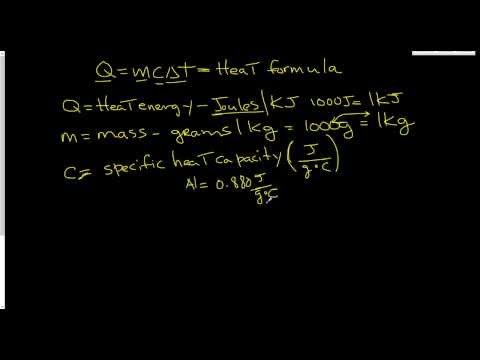 Q = mCΔt = Heat formula
Q = Heat energy - Joules/KJ 1000J = 1KJ
m = mass - grams/kg = 1000g = 1kg
C = specific heat capacity (J/g°C)
Al = 0.880 J/g°C